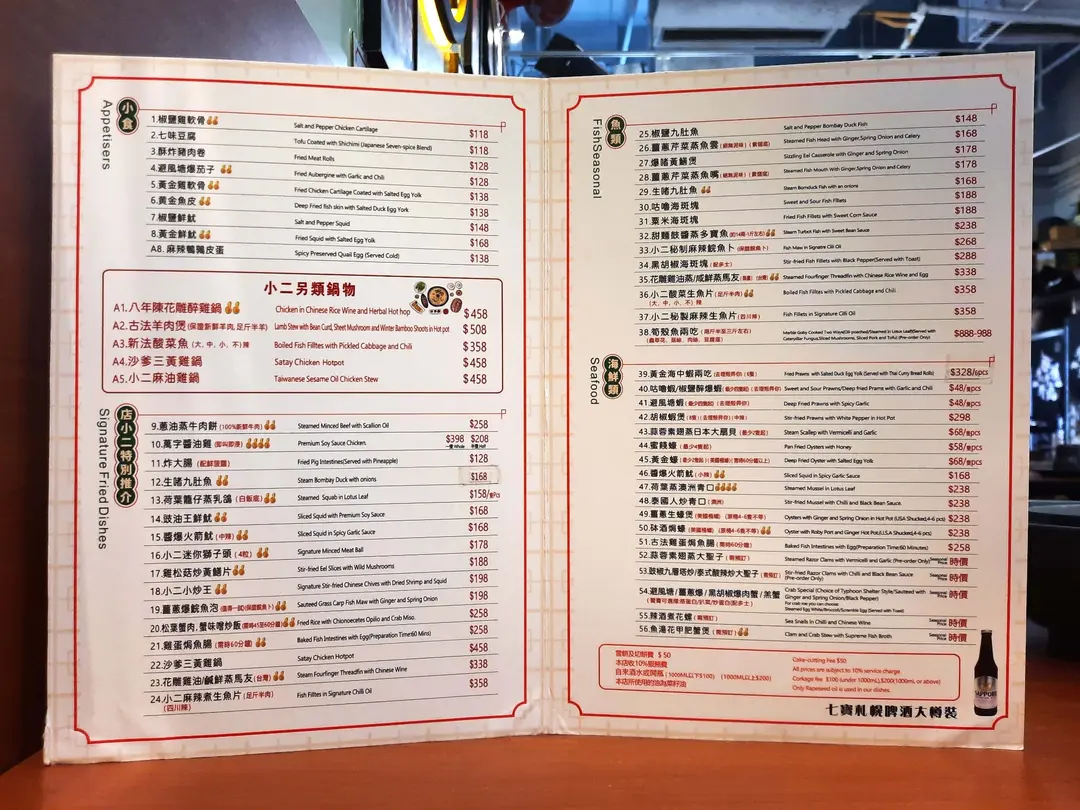 小食
Appetisers
1.椒鹽雞軟骨 Salt and Pepper Chicken Cartilage $118
2.七味豆腐 Tofu Coated with Shichimi (Japanese Seven-spice Blend) $118
3.酥炸豬肉卷 Fried Meat Rolls $128
4.避風塘爆茄子 Fried Aubergine with Garlic and Chili $128
5.黃金雞軟骨 Fried Chicken Cartilage Coated with Salted Egg Yolk $138
6.黃金魚皮 Deep Fried fish skin with Salted Duck Egg York $138
7.椒鹽鮮魷 Salt and Pepper Squid $148
8.黃金鮮魷 Fried Squid with Salted Egg Yolk $168
A8.麻辣鴨鶉皮蛋 Spicy Preserved Quail Egg (Served Cold) $138
小二另類鍋物
A1.八年陳花雕醉雞鍋 Chicken in Chinese Rice Wine and Herbal Hot hop $458
A2.古法羊肉煲(保證新鮮羊肉,足斤半羊) Lamb Stew with Bean Curd, Sheet Mushroom and Winter Bamboo Shoots in Hot pot $508
A3.新法酸菜魚 (大、中、小、不) 辣 Boiled Fish Filltes with Pickled Cabbage and Chili $358
A4.沙爹三黃雞鍋 Satay Chicken Hotpot $458
A5.小二麻油雞鍋 Taiwanese Sesame Oil Chicken Stew $458
店小二特別推介
Signature Fried Dishes
9.蔥油蒸牛肉餅 (100%新鮮牛肉) Steamed Minced Beef with Scallion Oil $258
10.萬字醬油雞 (即叫即浸) Premium Soy Sauce Chicken. $398 一隻 Whole $208 半隻 Half
11.炸大腸 (配鮮菠蘿) Fried Pig Intestines(Served with Pineapple) $128
12.生啫九肚魚 Steam Bombay Duck with onions $168
13.荷葉籠仔蒸乳鴿 (白飯底) Steamed Squab in Lotus Leaf $158/隻Pcs
14.豉油王鮮魷 Sliced Squid with Premium Soy Sauce $168
15.醬爆火箭魷 (中辣) Sliced Squid in Spicy Garlic Sauce $168
16.小二迷你獅子頭 (4粒) Signature Minced Meat Ball $178
17.雞松菇炒黃鱔片 Stir-fried Eel Slices with Wild Mushrooms $188
18.小二小炒王 Signature Stir-fried Chinese Chives with Dried Shrimp and Squid $198
19.薑蔥爆鯇魚泡 Sauteed Grass Carp Fish Maw with Ginger and Spring Onion $198
20.松葉蟹肉,蟹味噌炒飯(需時45至60分鐘) Fried Rice with Chionoecetes Opilio and Crab Miso. $258
21.雞蛋焗魚腸 (需時60分鐘) Baked Fish Intestines with Egg(Preparation Time:60 Mins) $258
22.沙爹三黃雞鍋 Satay Chicken Hotpot $458
23.花雕雞油/鹹鮮蒸馬友 (台灣) Steam Fourfinger Threadfin with Chinese Wine $338
24.小二麻辣煮生魚片 (足斤半肉) Fish Filltes in Signature Chilli Oil $358
(四川辣)
魚類
FishSeasonal
25.椒鹽九肚魚 Salt and Pepper Bombay Duck Fish $148
26.薑蔥芹菜蒸魚雲 Steamed Fish Head with Ginger,Spring Onion and Celery $168
27.爆啫黃鱔煲 Sizzling Eel Casserole with Ginger and Spring Onion $178
28.薑蔥芹菜蒸魚嘴 Steamed Fish Mouth With Ginger,Spring Onion and Celery $178
29.生啫九肚魚 Steam Bomduck Fish with an onions $168
30.咕嚕海斑塊 Sweet and Sour Fish Fillets $188
31.粟米海斑塊 Fried Fish Fillets with Sweet Corn Sauce $188
32.甜麵豉醬蒸多寶魚 Steam Turbot Fish with Sweet Bean Sauce $238
33.小二秘制麻辣鯇魚卜 Fish Maw in Signatre Cili Oil $268
34.黑胡椒海斑塊 (配多士) Stir-fried Fish Fillets with Black Pepper(Served with Toast) $288
35.花雕雞油蒸/咸鮮蒸馬友 (台灣) Steamed Fourfinger Threadfin with Chinese Rice Wine and Egg $338
36.小二酸菜生魚片 (足斤半肉) Boiled Fish Fillets with Pickled Cabbage and Chili $358
(大、中、小、不) 辣
37.小二秘製麻辣生魚片(四川辣) Fish Fillets in Signature Cilli Oil $358
38.筍殼魚兩吃 (兩斤半至三斤左右) Marble Goby Cooked Two Ways(Oil-poached/Steamed in Lotus Leaf)(Served with $888-988
Caterpillar Fungus,Sliced Mushrooms, Sliced Pork and Tofu) (Pre-order Only)
海鮮類
Seafood
39.黃金海中蝦兩吃 Fried Prawns with Salted Duck Egg Yolk (Served with Thai Curry Bread Rolls) $328/6pcs
40.咕嚕蝦/椒鹽酥爆蝦 Sweet and Sour Prawns/Deep fried Prams with Garlic and Chili $48/隻pcs
41.避風塘蝦 Deep Fried Prawns with Spicy Garlic $48/隻pcs
42.胡椒蝦煲 Stir-fried Prawns with White Pepper in Hot Pot $298
43.蒜蓉素翅蒸日本大扇貝 Steam Scallep with Vermicelli and Garlic $68/隻pcs
44.蜜餞蠔 Pan Fried Oysters with Honey $58/隻pcs
45.黃金蠔 Deep Fried Oyster with Salted Egg Yolk $68/隻pcs
46.醬爆火箭魷 (小辣) Sliced Squid in Spicy Garlic Sauce $168
47.荷葉蒸澳洲青口 Steamed Mussel in Lotus Leaf $238
48.泰國人炒青口 (澳洲) Stir-fried Mussel with Chilli and Black Bean Sauce $238
49.薑蔥生蠔煲 Oysters with Ginger and Spring Onion in Hot Pot (USA Shucked,4-6 pcs) $238
50.砵酒焗蠔 Oyster with Roby Port and Ginger Hot Pot(U.S.A Shucked,4-6 pcs) $238
51.古法雞蛋焗魚腸 (需時60分鐘) Baked Fish Intestines with Egg(Preparation Time:60 Minutes) $258
52.蒜蓉素翅蒸大聖子 (需預訂) Steamed Razor Clams with Vermicelli and Garlic (Pre-order Only) Seasonal Price 時價
53.豉椒九層塔炒/泰式酸辣炒大聖子 (需預訂) Stir-fried Razor Clams with Chilli and Black Bean Sauce Seasonal Price 時價
(Pre-order Only)
54.避風塘/薑蔥爆/黑胡椒爆肉蟹/羔蟹 Crab Special (Choice of Typhoon Shelter Style/Sauteed with Seasonal Price 時價
Ginger and Spring Onion/Black Pepper)
For crab roe you can choose:
Steamed Egg White/Broccoli/Scramble Egg (Served with Toast)
55.辣酒煮花螺 (需預訂) Sea Snails In Chilli and Chinese Wine Seasonal Price 時價
56.魚湯花甲肥蟹煲 (需預訂) Clam and Cab Stew with Supreme Fish Broth Seasonal Price 時價
響朝及切餅費 $ 50 Cake-cutting Fee $50
本店收10%服務費 All prices are subject to 10% service charge
自來酒水或開瓶 (1000ML以下$100) (1000ML以上$200) Corkage fee $100 (under 1000mL),$200(1000mL or above)
本店所使用的油為菜籽油 Only Rapeseed oil is used in our dishes.
七寶札幌啤酒大樽裝
SAPPORO